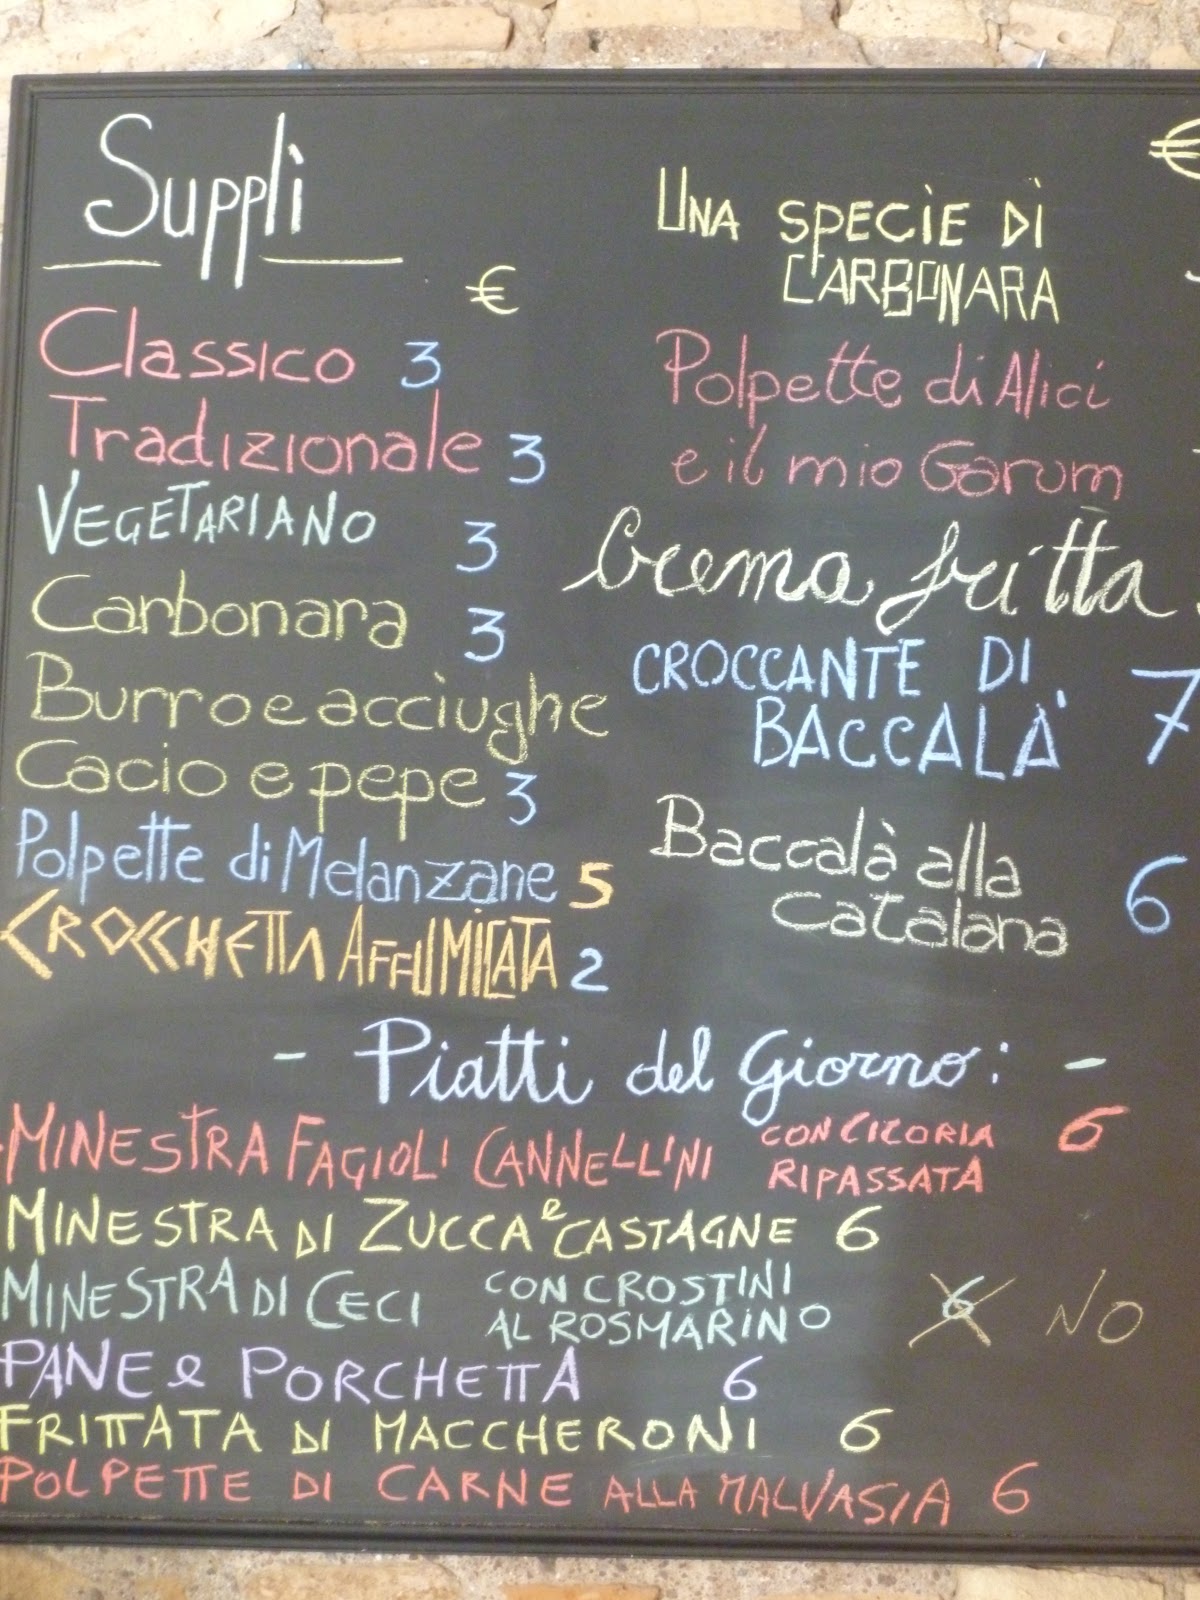 Supplì
€
Classico 3
Tradizionale 3
VEGETARIANO 3
Carbonara 3
Burro e acciughe
Cacio e pepe 3
Polpette di Melanzane 5
CROCCHETTA AFFUMICATA 2
€
UNA SPECIE DI
CARBONARA
Polpette di Alici
e il mio Garum
Crema fritta
CROCCANTE DI
BACCALÀ 7
Baccalà alla
Catalana 6
- Piatti del Giorno: -
MINESTRA FAGIOLI CANNELLINI CON CICORIA RIPASSATA 6
MINESTRA DI ZUCCA e CASTAGNE 6
MINESTRA DI CECI CON CROSTINI AL ROSMARINO 6 NO
PANE e PORCHETTA 6
FRITTATA DI MACCHERONI 6
POLPETTE DI CARNE ALLA MALVASIA 6